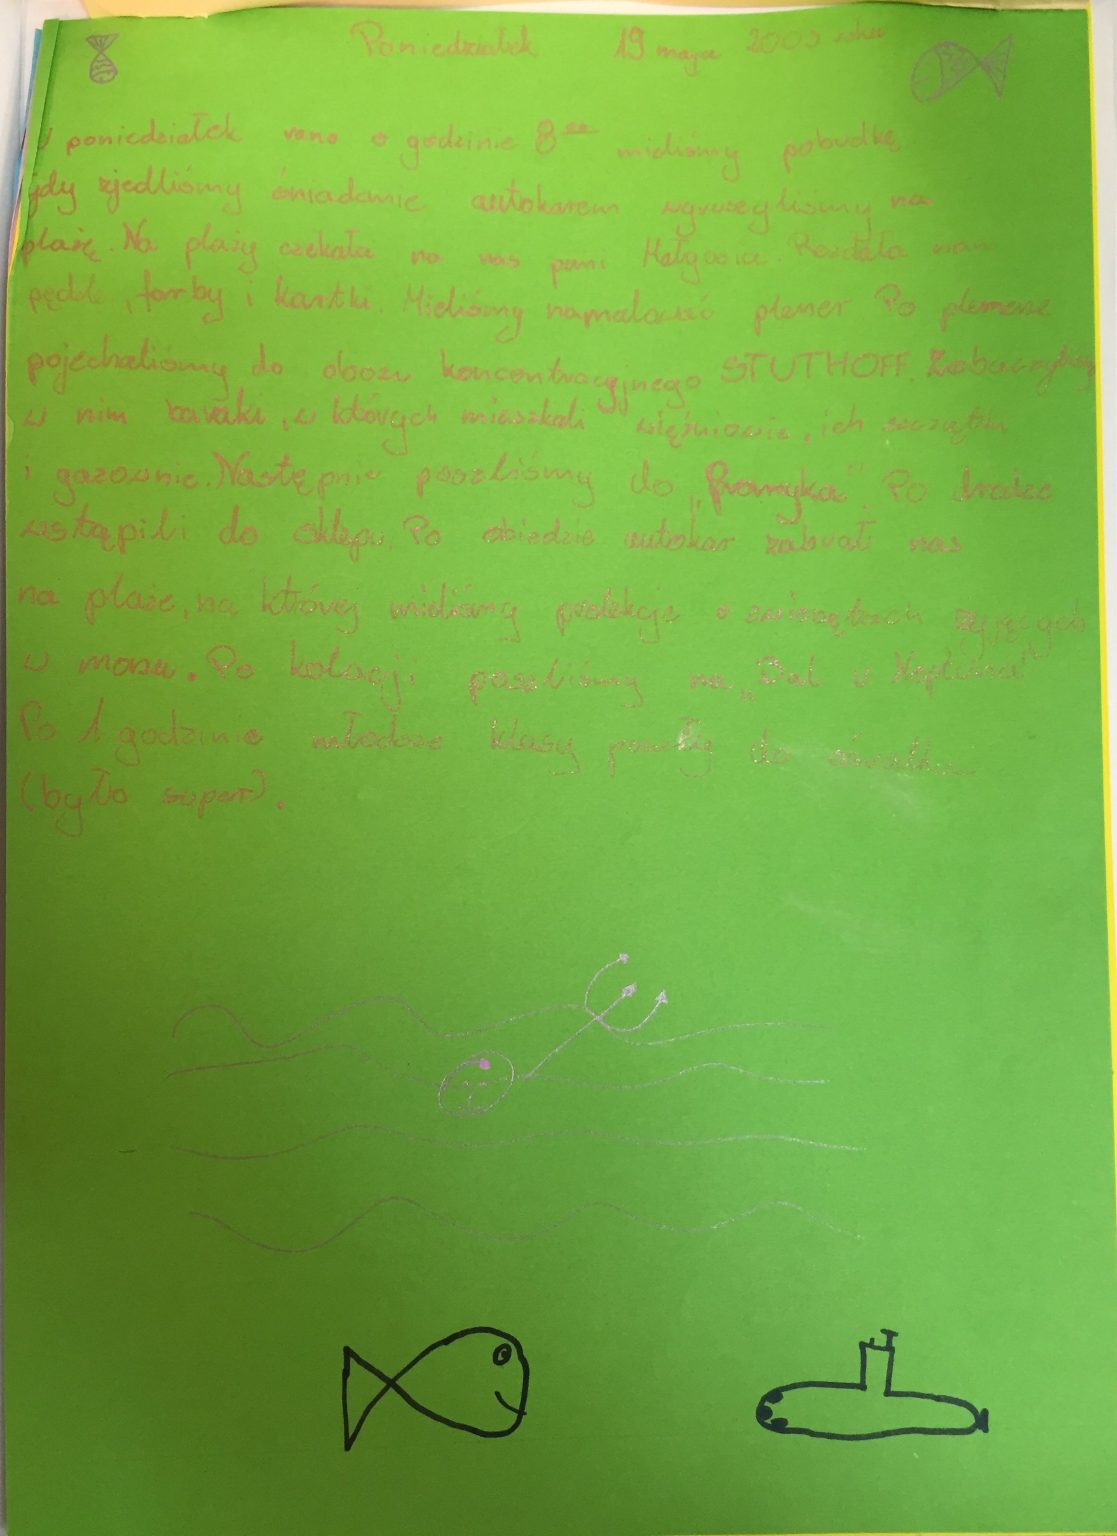 Poniedziałek 19 maja 2003 roku
W poniedziałek rano o godzinie 8⁰⁰ mieliśmy pobudkę
gdy zjedliśmy śniadanie autokarem wyruszyliśmy na
plażę. Na plaży czekała na nas pani Małgosia. Rozdała nam
pędzle, farby i kartki. Mieliśmy namalować plener Po plenerze
pojechaliśmy do obozu koncentracyjnego STUTHOFF. Zobaczyliśmy
w nim baraki, w których mieszkali więźniowie, ich szczątki
i gazownie. Następnie poszliśmy do „Promyka". Po drodze
wstąpili do sklepu. Po obiedzie autokar zabrał nas
na plaże, na której mieliśmy prelekcje o zwierzętach żyjących
w morzu. Po kolacji poszliśmy na „Bal u Neptuna"
Po 1 godzinie młodsze klasy poszły do ośrodka
(było super).